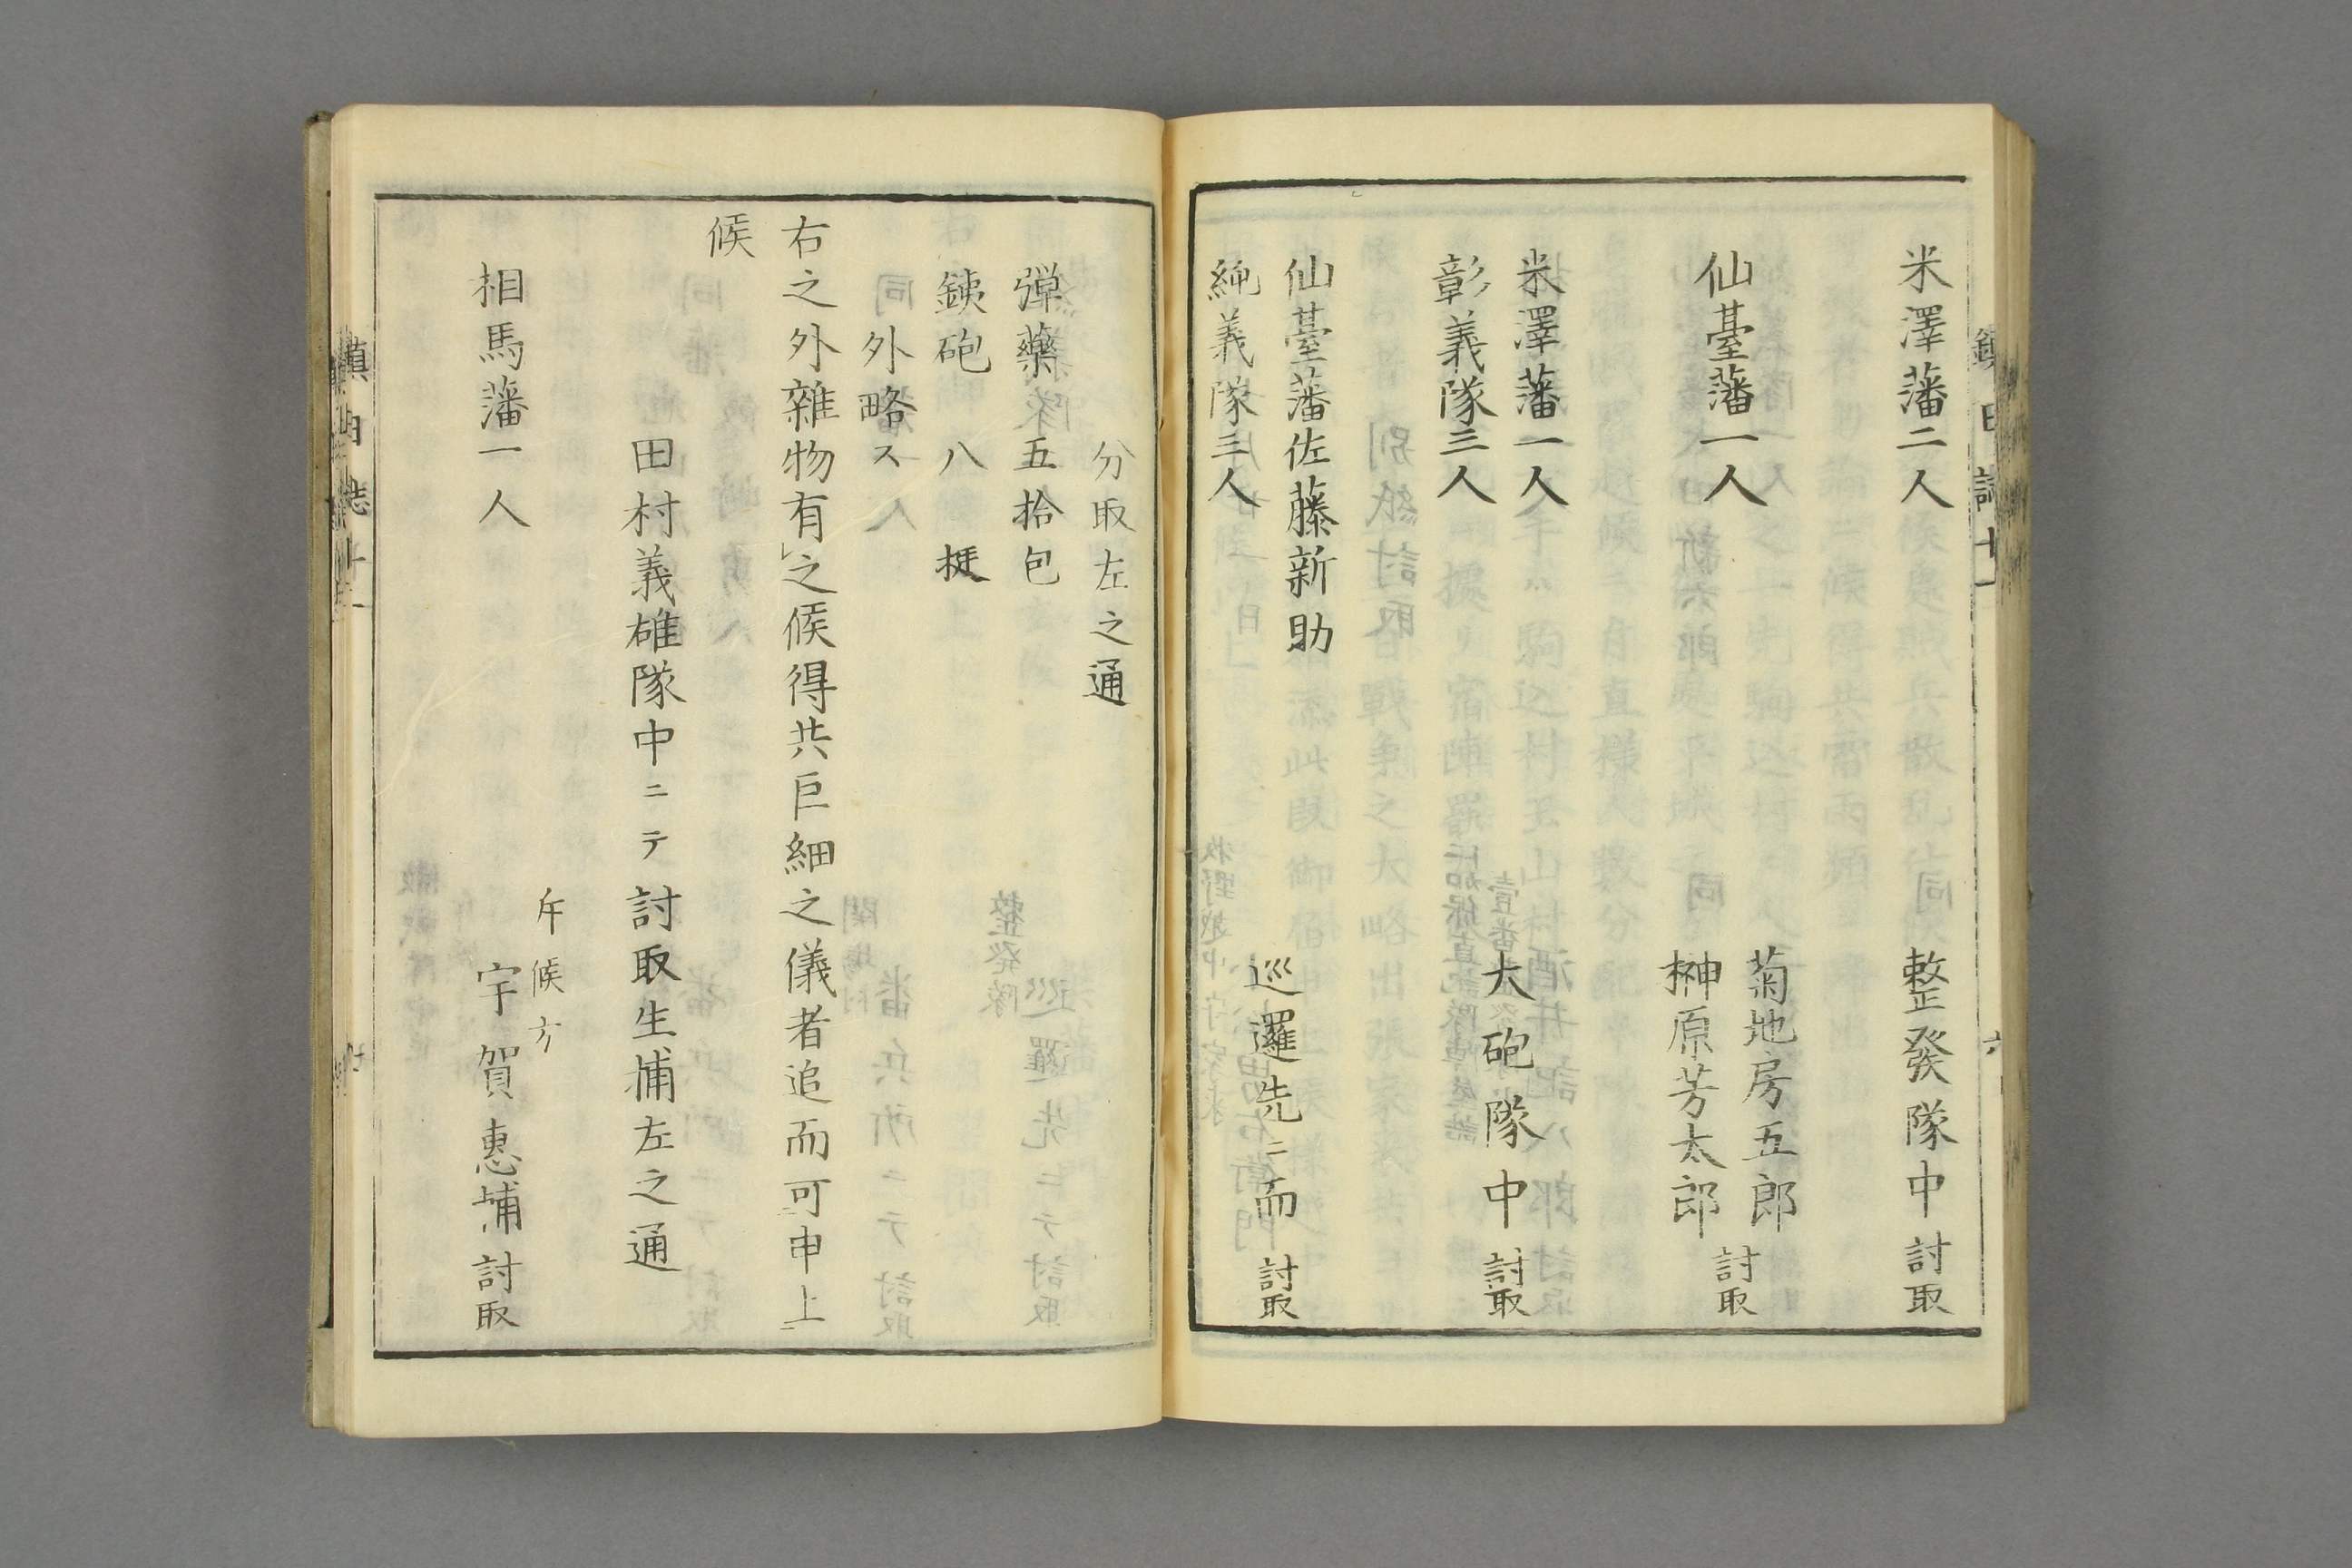 米澤藩二人
整發隊中討取
仙臺藩一人
菊地房五郎
榊原芳太郎
討取
米澤藩一人
彰義隊三人
大砲隊中討取
仙臺藩佐藤新助
純義隊三人
巡邏先ニ而討取
分取左之通
彈藥五拾包
銕砲八挺
外略ス
右之外雜物有之候得共巨細之儀者追而可申上
候
田村義雄隊中ニテ討取生捕左之通
相馬藩一人
斥候方
宇賀惠埔討取